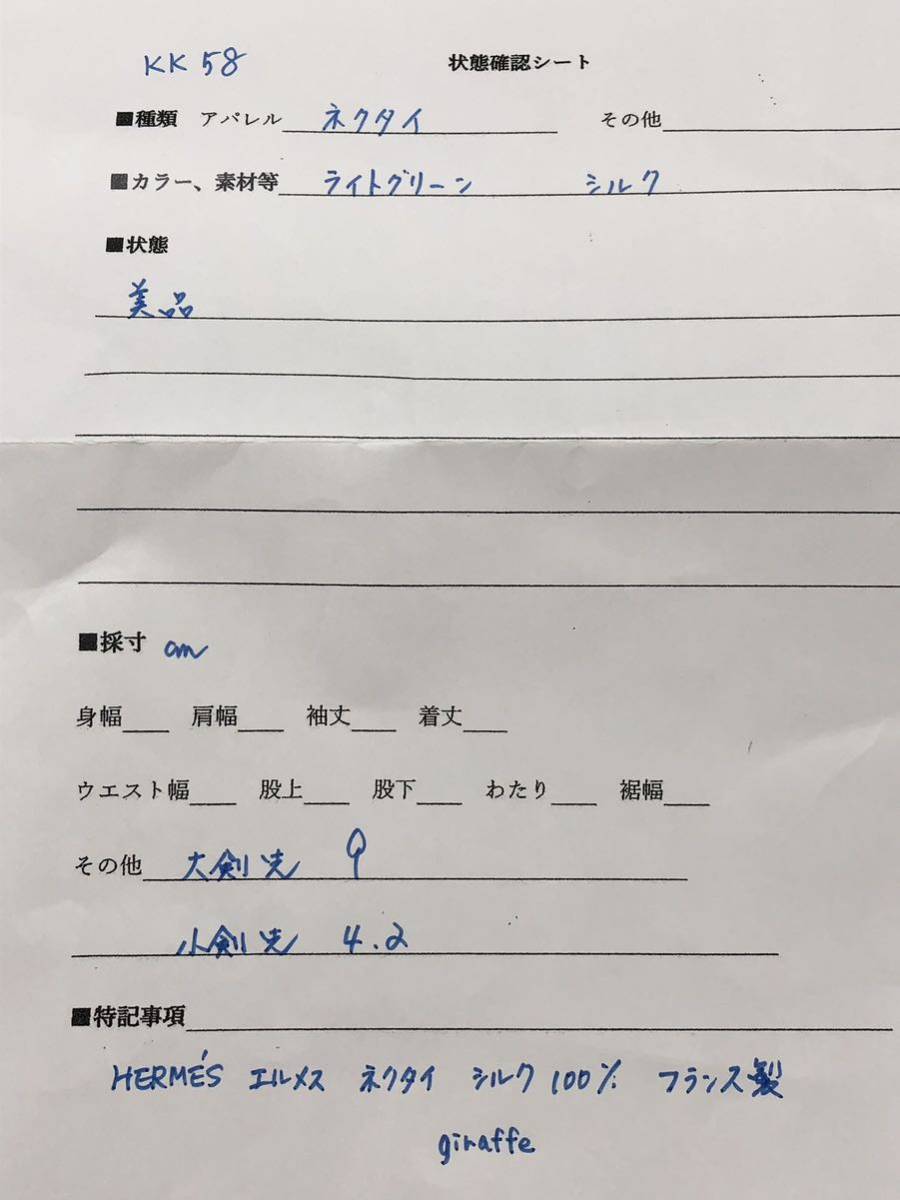 KK 58 状態確認シート
■種類 アパレル ネクタイ その他
■カラー、素材等 ライトグリーン シルク
■状態
美品
■採寸 cm
身幅 肩幅 袖丈 着丈
ウエスト幅 股上 股下 わたり 裾幅
その他 大剣先 9
小剣先 4.2
■特記事項
HERMÉS エルメス ネクタイ シルク 100% フランス製
giraffe